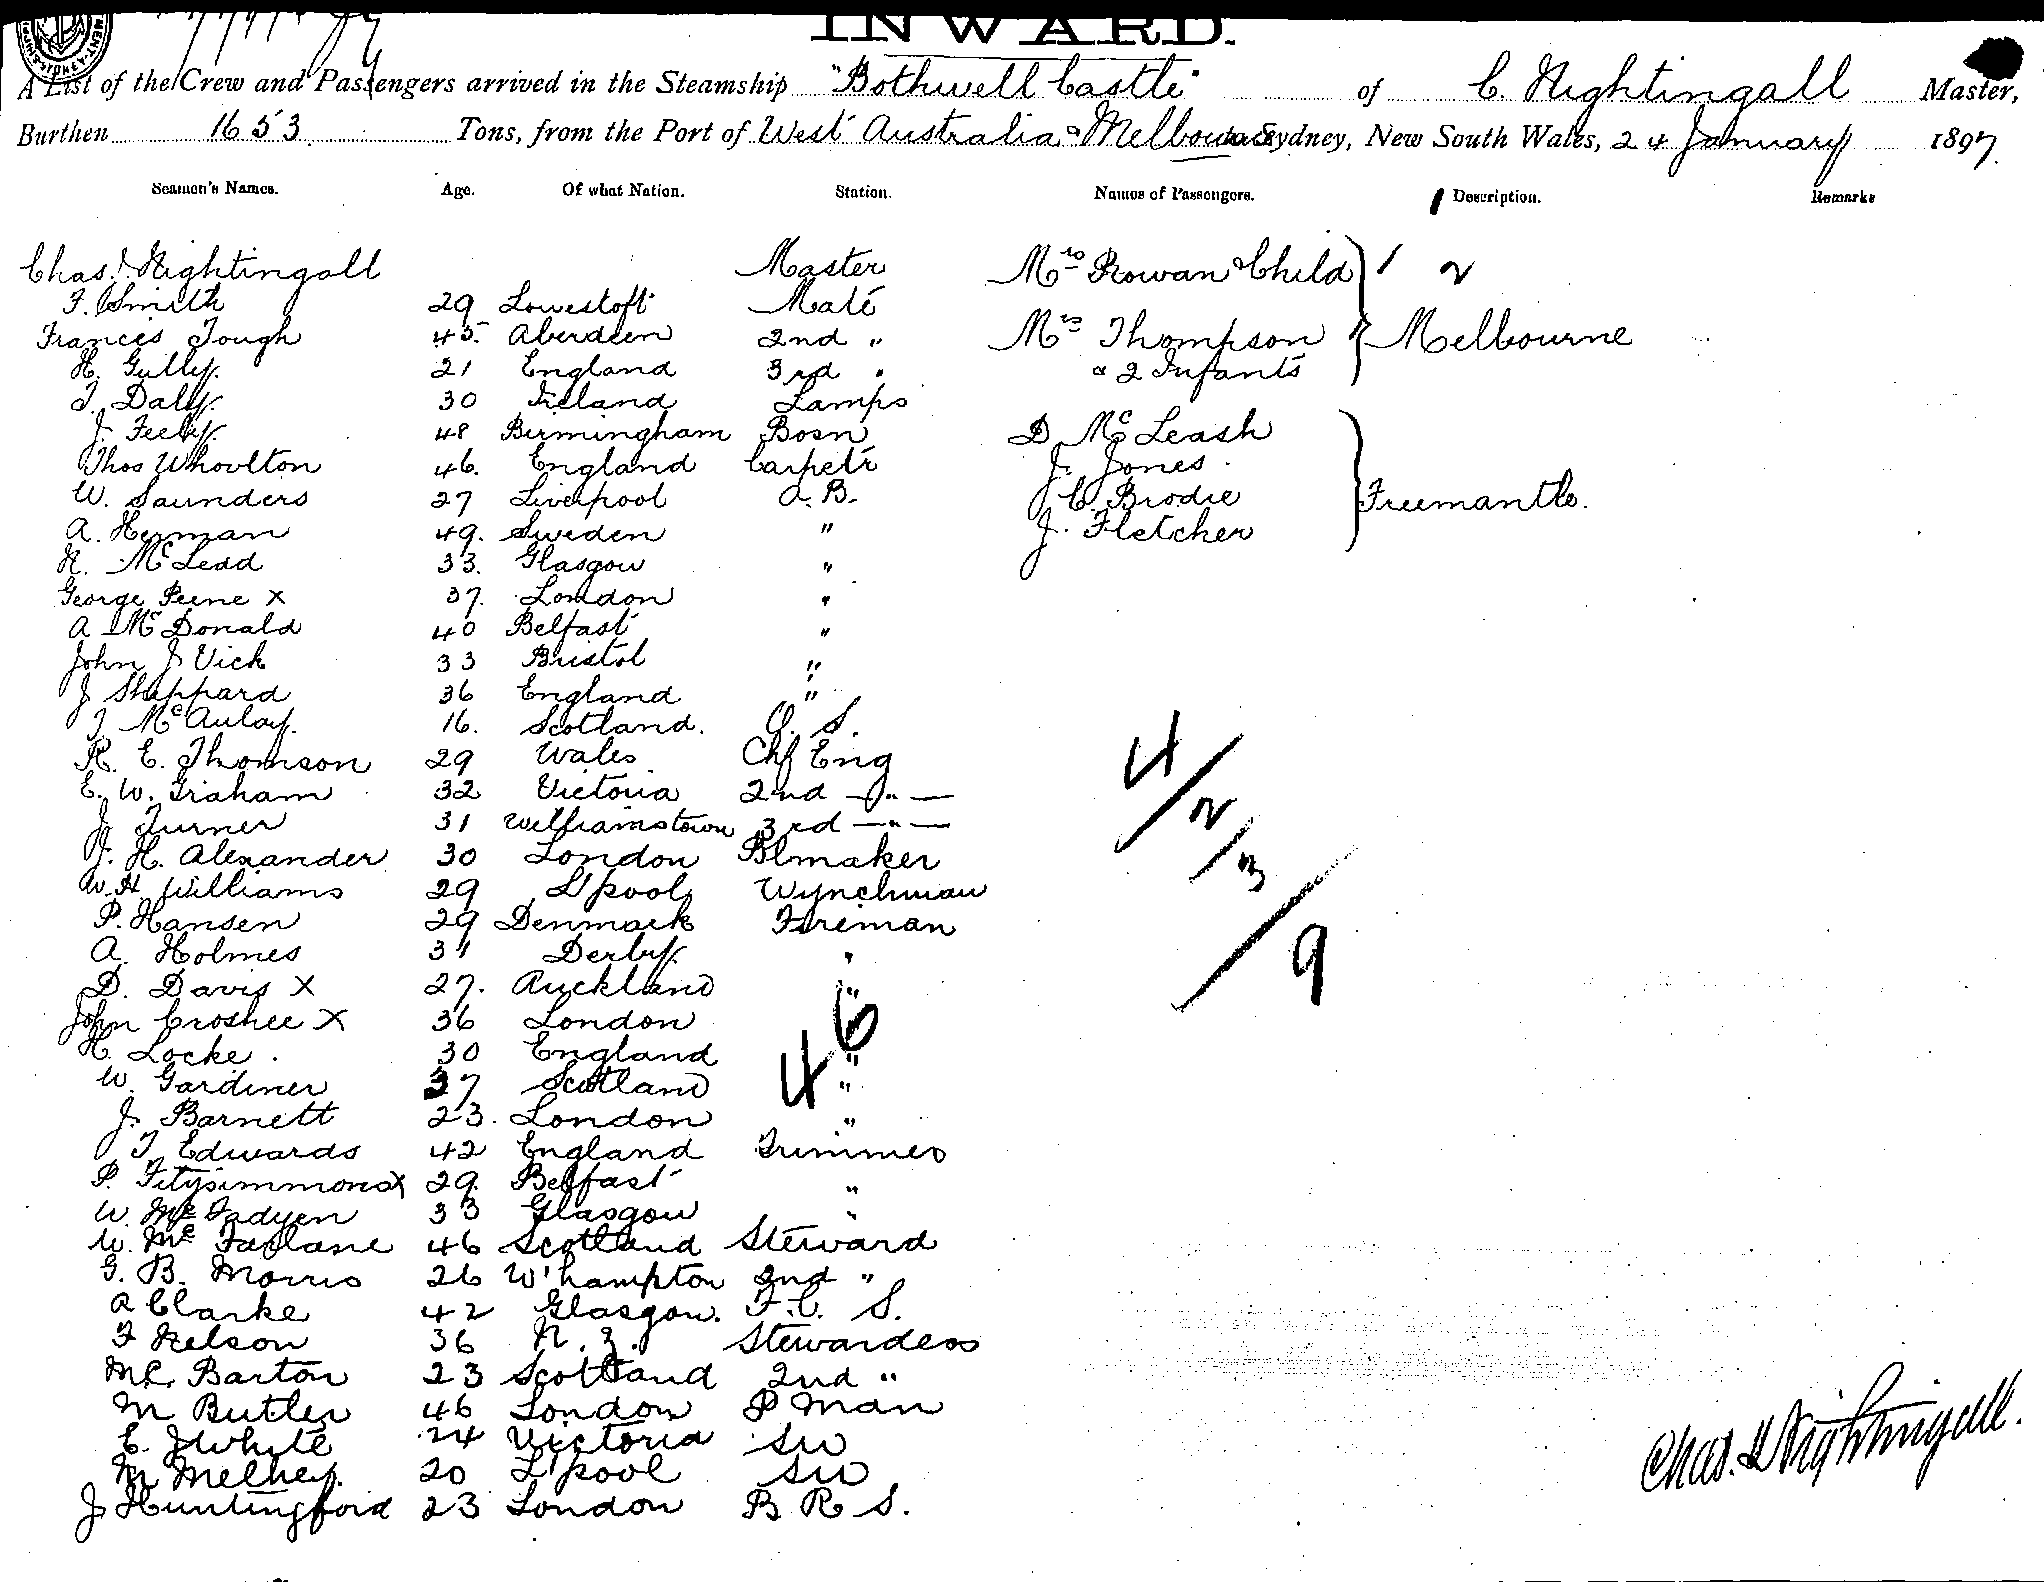 INWARD.
A List of the Crew and Passengers arrived in the Steamship "Bothwell Castle" of C. Nightingall Master,
Burthen 1653 Tons, from the Port of West Australia & Melbourne to Sydney, New South Wales, 24 January 1897.
Seamen's Names. Age. Of what Nation. Station. Names of Passengers. Description. Remarks
Chas. Nightingall Master Mrs Rowan & Child 1 2
F. Smith 29 Lowestoft Mate
Frances Tough 45 Aberdeen 2nd " Mrs Thompson Melbourne
H. Gully 21 England 3rd " & 2 Infants
T. Daly 30 Ireland Lamps
J. Feely 48 Birmingham Bosn D McLeash
Thos Whoolton 46. England Carpetr J. Jones
W. Saunders 27 Liverpool A.B. C. Brodie Freemantle.
A. Herman 49. Sweden " J. Fletcher
N. McLead 33. Glasgow "
George Peene X 37. London "
A McDonald 40 Belfast "
John J Vick 33 Bristol "
J Sheppard 36 England "
J McAulay 16. Scotland. O. S.
R. E. Thomson 29 Wales Chf Eng
E. W. Graham 32 Victoria 2nd — " —
J. Turner 31 Williamstown 3rd — " —
J. H. Alexander 30 London Blmaker
W. H Williams 29 L'pool Wynchman
P. Hansen 29 Denmark Fireman
A. Holmes 31 Derby "
D. Davis X 27. Auckland "
John Croshee X 36 London
H. Locke. 30 England "
W. Gardiner 37 Scotland "
J. Barnett 23. London "
T Edwards 42 England Trimmer
P. Fitzsimmons X 29. Belfast "
W. McFadyen 33 Glasgow "
W. McFarlane 46 Scotland Steward
G. B. Morris 26 W'hampton 2nd "
A Clarke 42 Glasgow. F.C. S.
F Nelson 36 N.Z. Stewardess
M.C. Barton 23 Scotland 2nd "
M Butler 46 London P Man
E. J Whyte 24 Victoria SW
M Melhey. 20 L'pool SW
J Huntingford 23 London B R S.
46
4
2
3
9
Chas. H Nightingall.